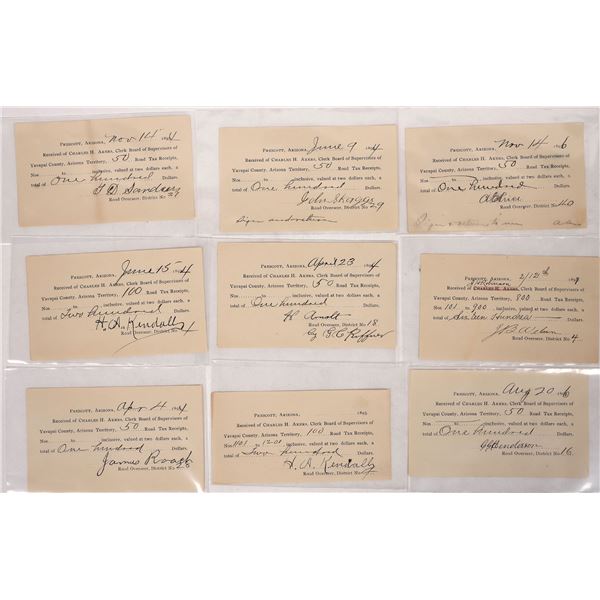 Prescott, Arizona, Nov 14 1894
Received of Charles H. Akers, Clerk Board of Supervisors of
Yavapai County, Arizona Territory, 50 Road Tax Receipts,
Nos. to inclusive, valued at two dollars each, a
total of One hundred Dollars.
Road Overseer, District No.
Prescott, Arizona, June 9 1894
Received of Charles H. Akers, Clerk Board of Supervisors of
Yavapai County, Arizona Territory, 50 Road Tax Receipts,
Nos. to inclusive, valued at two dollars each, a
total of One hundred Dollars.
John
Road Overseer, District No. 29
Prescott, Arizona, Nov 14 1896
Received of Charles H. Akers, Clerk Board of Supervisors of
Yavapai County, Arizona Territory, 50 Road Tax Receipts,
Nos. to inclusive, valued at two dollars each, a
total of One hundred Dollars.
Road Overseer, District No. 40
Prescott, Arizona, June 15 1894
Received of Charles H. Akers, Clerk Board of Supervisors of
Yavapai County, Arizona Territory, 100 Road Tax Receipts,
Nos. to inclusive, valued at two dollars each, a
total of Two hundred Dollars.
H. A. Kendall
Road Overseer, District No.
Prescott, Arizona, April 23 1894
Received of Charles H. Akers, Clerk Board of Supervisors of
Yavapai County, Arizona Territory, 50 Road Tax Receipts,
Nos. to inclusive, valued at two dollars each, a
total of One hundred Dollars.
Arnold
Road Overseer, District No. 18
By Ruffner
Prescott, Arizona, 2/12th
Received of Charles H. Akers, Clerk Board of Supervisors of
Yavapai County, Arizona Territory, 800 Road Tax Receipts,
Nos. 101 to 900 inclusive, valued at two dollars each, a
total of Sixteen Hundred Dollars.
Road Overseer, District No. 4
Prescott, Arizona, Apr 4 1894
Received of Charles H. Akers, Clerk Board of Supervisors of
Yavapai County, Arizona Territory, 50 Road Tax Receipts,
Nos. to inclusive, valued at two dollars each, a
total of One hundred Dollars.
James Roach
Road Overseer, District No.
Prescott, Arizona, 1895
Received of Charles H. Akers, Clerk Board of Supervisors of
Yavapai County, Arizona Territory, 100 Road Tax Receipts,
Nos. 1101 to 1201 inclusive, valued at two dollars each, a
total of Two hundred Dollars.
H. A. Kendall
Road Overseer, District No.
Prescott, Arizona, Aug 20 1896
Received of Charles H. Akers, Clerk Board of Supervisors of
Yavapai County, Arizona Territory, 50 Road Tax Receipts,
Nos. to inclusive, valued at two dollars each, a
total of One hundred Dollars.
Road Overseer, District No. 16